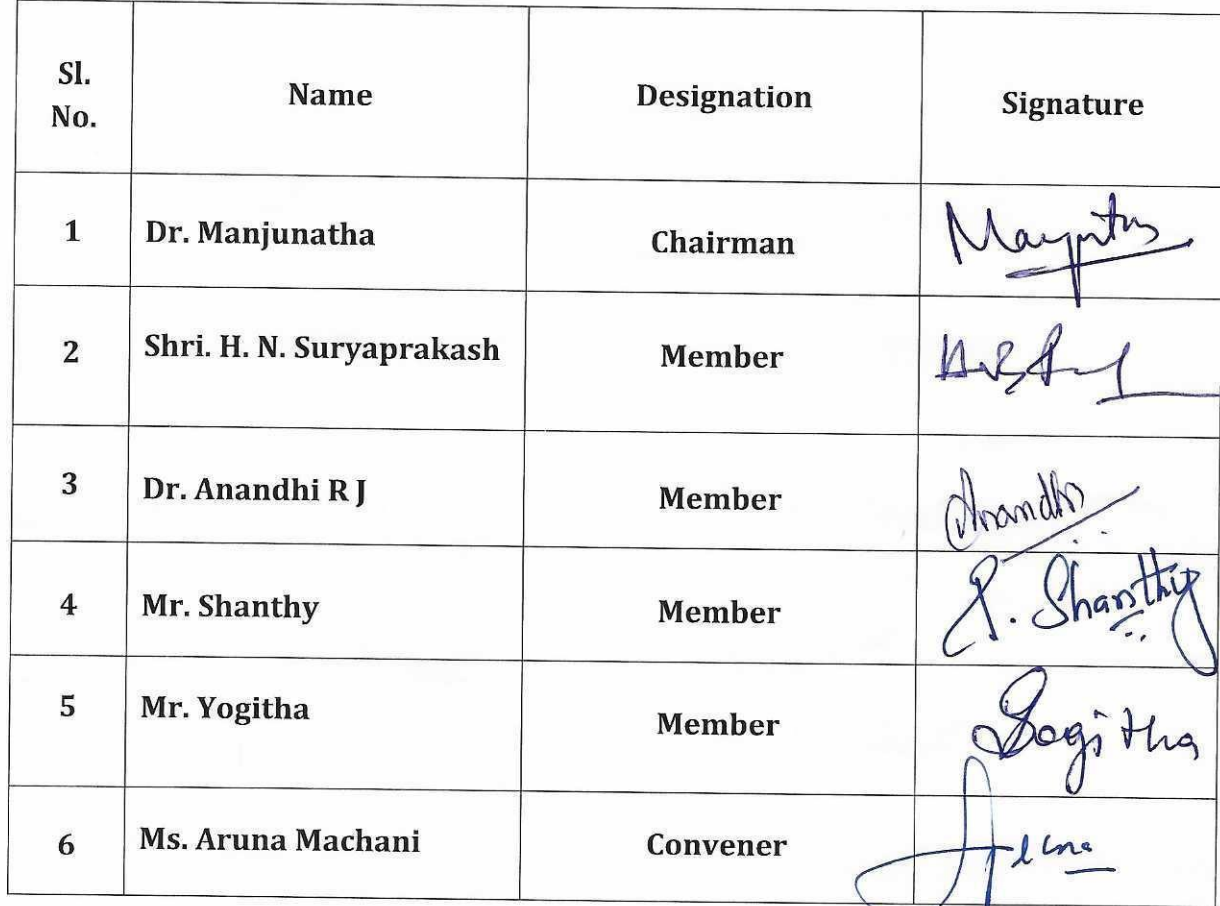 Sl. No. Name Designation Signature
1 Dr. Manjunatha Chairman
2 Shri. H. N. Suryaprakash Member
3 Dr. Anandhi R J Member Anandhi
4 Mr. Shanthy Member P. Shanthy
5 Mr. Yogitha Member Yogitha
6 Ms. Aruna Machani Convener Aruna